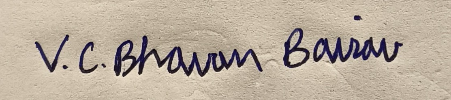 V.C.Bhavan Bairav